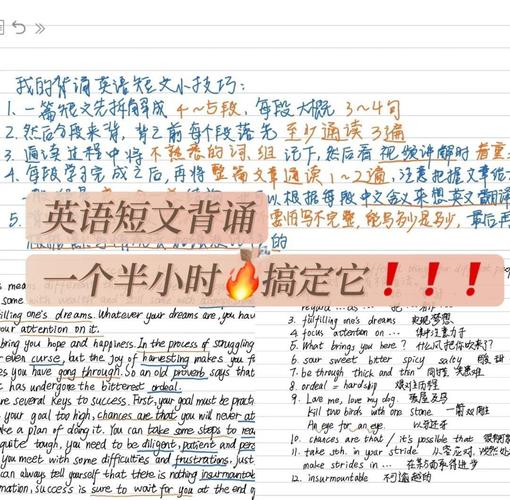 我的背诵英语短文小技巧:
1. 一篇短文先拆解成 4~5段, 每段大概 3~4句
2. 然后分段来背, 背之前每个段落先 至少通读3遍
3. 通读过程中将 不熟悉的词、组 记下, 然后看 视频讲解时 着重
4. 每段学习完成之后, 再将 整篇文章通读 1~2遍, 注意把握文章
根据每段中文含义来想英文翻译
5.
写不完整, 能写多少是多少, 最后再
的
英语短文背诵
一个半小时🔥搞定它❗❗❗
means different
some with wealth and
filling one's dreams. Whatever your dreams are, you hav
your attention on it.
bring you hope and happiness. In the process of struggling
even curse, but the joy of harvesting makes you f
es you have gong through. So an old proverb says that
t has undergone the bitterest ordeal.
are several keys to success. First, your goal must be practi
your goal too high, chances are that you will never at
e a plan of doing it. You can take some steps to rea
quite tough, you need to be diligent, patient and pers
you meet with some difficulties and frustrations, just
can always tell yourself that there is nothing insurmountabl
mination, success is sure to wait for you at the end o
regard ... as ...
3. fulfilling one's dreams 实现梦想
4. focus attention on ... 集中注意力于
5. What brings you here? 什么风把你吹来了?
6. sour sweet bitter spicy salty 酸甜
7. be through thick and thin 同甘共苦
8. ordeal = hardship 艰难历程
9. Love me, love my dog. 爱屋及乌
kill two birds with one stone. 一箭双雕
An eye for an eye. 以牙还牙
10. chances are that / it's possible that 很可能
11. take sth. in your stride 从容应对
make strides in ... 在某方面取得进步
12. insurmountable 不可逾越的